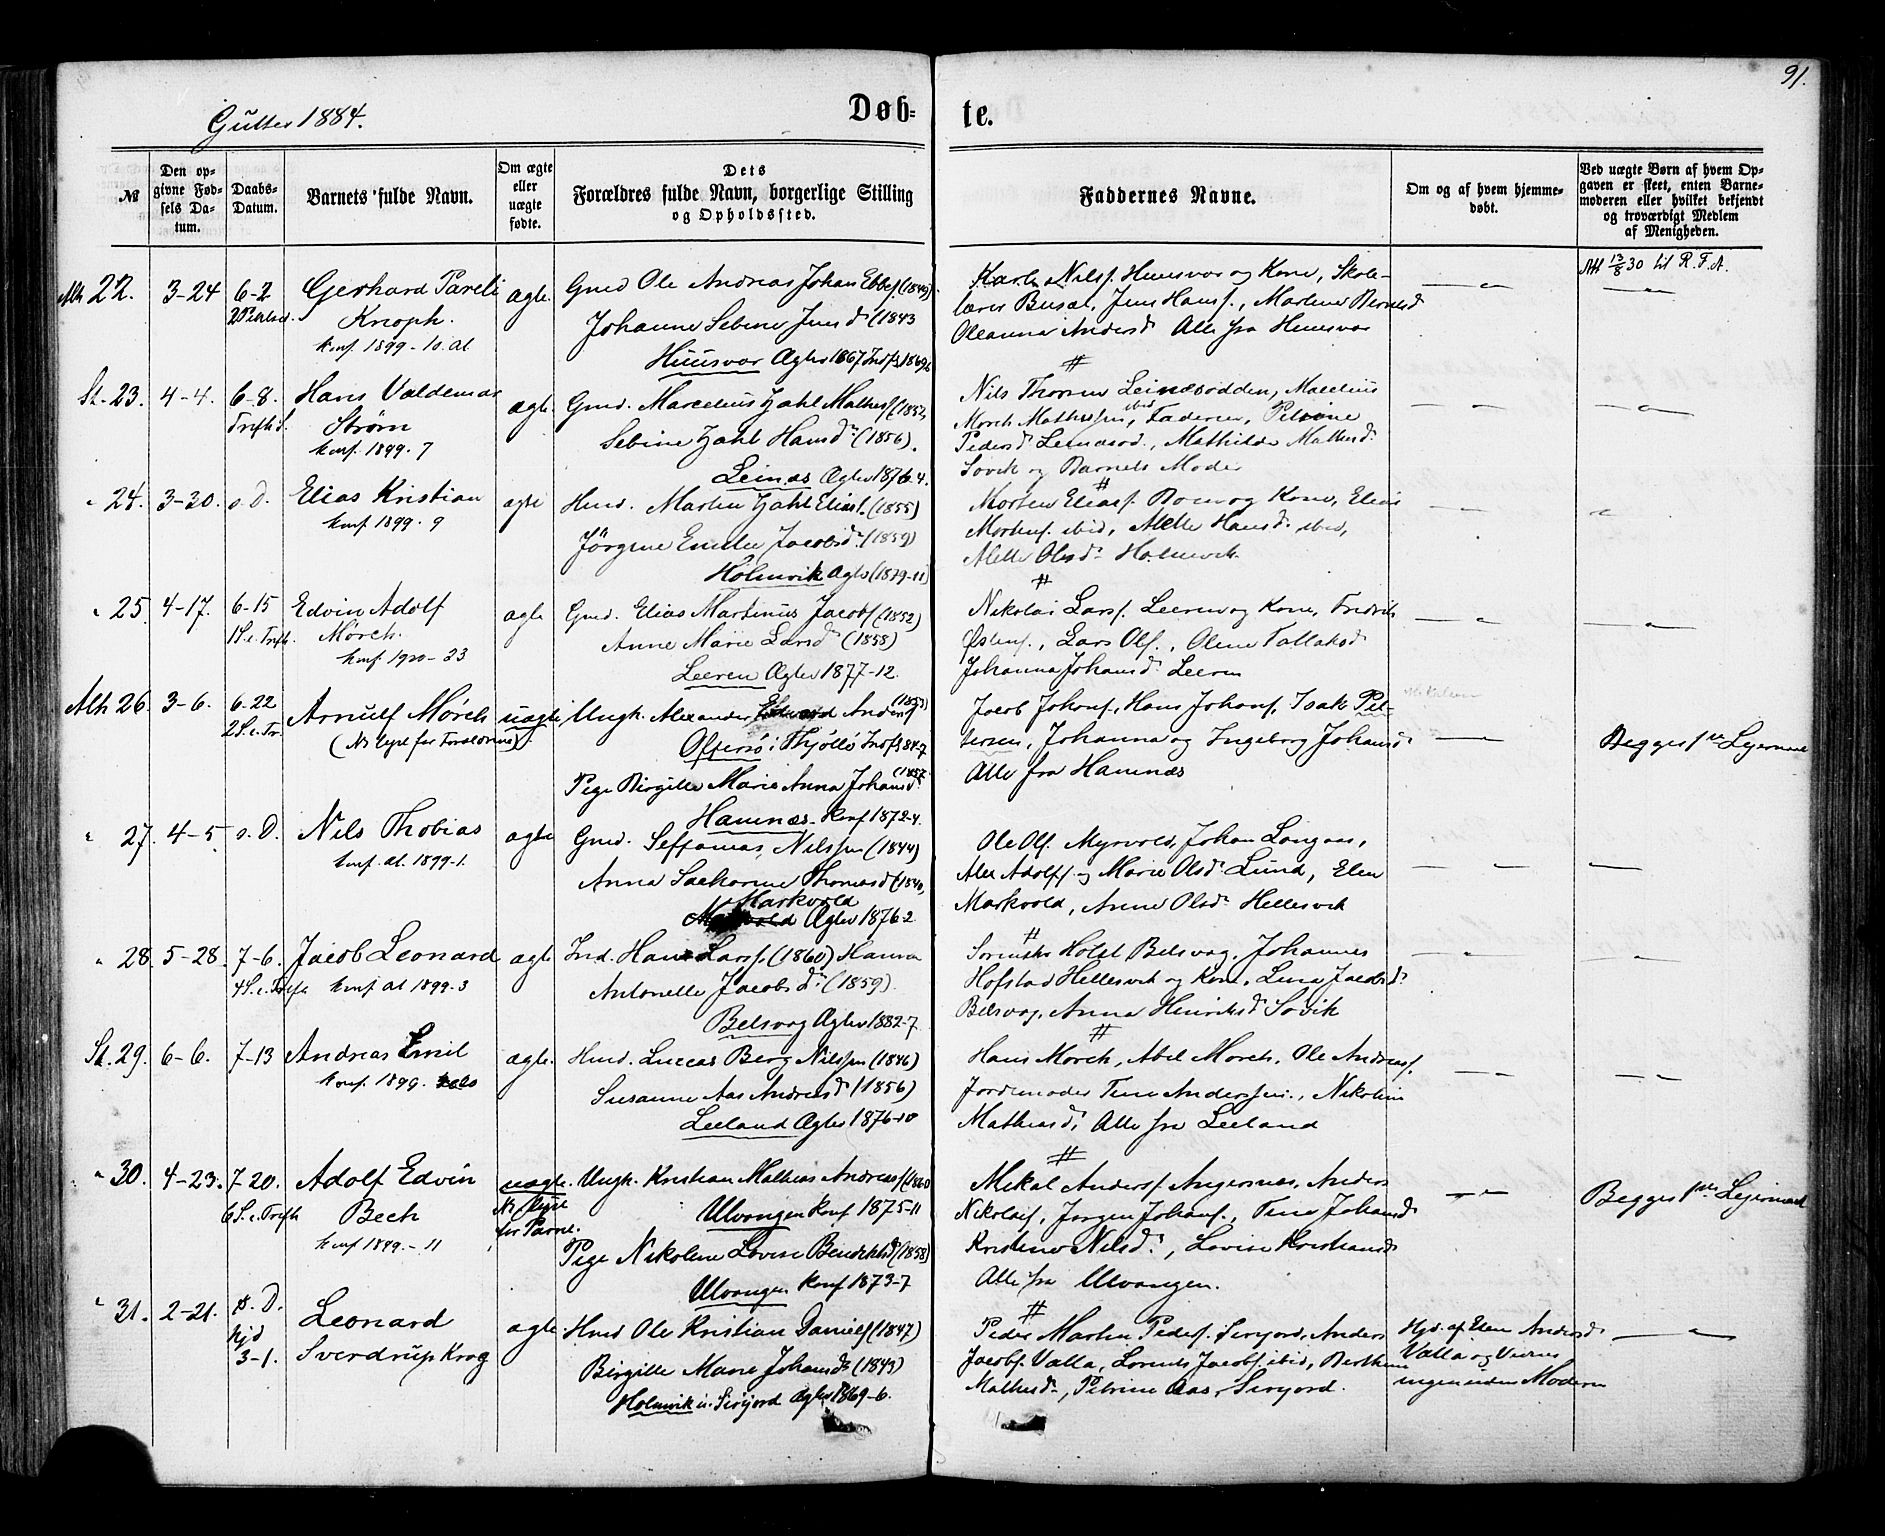 91.
Gutter 1884.
Døb-
te.
№
Den op-
givne Fød-
sels Da-
tum.
Daabs-
Datum.
Barnets fulde Navn.
Om ægte
eller
uægte
fødte.
Dets
Forældres fulde Navn, borgerlige Stilling
og Opholdssted.
Faddernes Navne.
Om og af hvem hjemme-
døbt.
Ved uægte Børn af hvem Op-
gaven er skeet, enten Barne-
moderen eller hvilket bekjendt
og troværdigt Medlem
af Menigheden.
Alh 22. 3-24 6-2
Gerhard Pareli
Knoph.
konf. 1899-10. al
ægte
Gmd Ole Andreas Johan Ebbes. (1849)
Johanne Sebine Jensd. (1843
Huusvær Ægtev 1867
Karl Nilss. Huusvær og Kone, Skole-
lærer Busæt, Jens Hanss., Martene Berntsd
Oleanna Andersd. Alle fra Huusvær
Att 13/8 30 til R.T.A.
St. 23. 4-4. 6-8.
Hans Valdemar
Strøm
konf. 1899. 7
ægte
Gmd. Marcelius Zahl Mathess (1852)
Sebine Zahl Hansd. (1856).
Leinæs Ægtev 1876-4.
#
Nils Thoresen Leinæsodden,
Morch Mathissen, ibid Faderen,
Pedersd. , Mathilde
Søvik og Barnets Moder
" 24. 3-30. s. D.
Elias Kristian
konf. 1899. 9
ægte
Hmd. Martin Zahl Eliass. (1855)
Jörgine Emilie Jacobsd. (1859)
Holmvik Ægtev (1879-11)
#
Morten Eliass. og Kone, Elias
Mortens. ibid, Hansd. ibid,
Olsd. Holmvik.
" 25. 4-17. 6-15
1S.e.Trefh.
Edvin Adolf
Mørch.
konf. 1900-23
ægte
Gmd. Elias Martinus Jacobs (1852)
Anne Marie Larsd. (1858)
Leeren Ægtev 1877-12.
#
Nikolai Larss. Leeren og Kone, Fredrik
Østens., Lars Ols., Oline Tollaksd
Johanna Johansd. Leeren
Alh 26. 3-6. 6-22
2S.e.Tr.
Arnulf Mørch
(No lyst for Forældrene)
uægte
Ungk. Alexander Edvard Anders. (1853)
i Thjøtta
Pige Birgitte Marie Anna Johansd. (1857
Hamnæs. Konf 1872-4.
Jacob Johans., Hans Johans, Isak Pet-
tersen, Johanna og Ingeborg Johansd
Alle fra Hamnæs
Begges 1ste Lejermaal
" 27. 4-5. s. D.
Nils Thobias
konf. al. 1899-1.
ægte
Gmd. Seffanias Nilssen (1844)
Anna Sachorine Thomasd. (1840)
Markvold
Ægtev 1876-2
Ole Ols. Myrvold, Johan Langaas,
Alex Adolfs. og Marie Olsd. Lund, Elen
Markvold, Anne Olsd. Hellesvik
" 28. 5-28. 7-6.
4S.e.Trefh
Jacob Leonard
konf al 1899-3
ægte
Ind. Hans Larss. (1860) Hanna
Antonette Jacobsd. (1859)
Belsvag Ægtev 1882-7.
#
Holst Belsvag, Johannes
Hofstad Hellesvik og Kone, Lina Jacobsd
Belsvag, Anna Henriksd Søvik
St. 29. 6-6. 7-13
Andreas Emil
konf. 1899.
ægte.
Hmd. Luccas Berg Nilssen (1846)
Susanne Aas Andreasd. (1856)
Leeland Ægtev 1876-10
#
Hans Morch, Abel Morch, Ole Andreass.
Jordemoder Tine Anderssen., Nikoline
Mathiasd. Alle fra Leeland
" 30. 4-23. 7-20.
6S.e.Trefh
Adolf Edvin
Bech
konf 1899.-11
uægte.
No lyst
for Parret.
Ungk. Kristian Mathias Andreass. (1860
Ulvangen Konf 1875-11
Pige Nikoline Lovise Bendiktsd (1858)
Ulvangen konf 1873-7
#
Mikal Anderss. Angersnæs, Anders
Nikolais., Jørgen Johans., Tina Johansd
Kristine Nilsd., Lovise Kristiansd
Alle fra Ulvangen.
Begges 1ste Lejermaal
" 31. 2-21. s. D.
hjd
3-1.
Leonard
Sverdrup Krog
ægte.
Hmd Ole Kristian Daniels. (1847)
Birgitte Marie Johansd. (1843)
Holmvik u. Sevjord Ægtev 1869-6.
#
Peder Martin Peders. Sevjord, Anders
Jacobs. Valla, Lorents Jacobs. ibid, Berthine
Mathisd., Petrine Aas, Sevjord.
Hjd. af Elen Andersd.
Valla og Vidne
ingen uden Modern